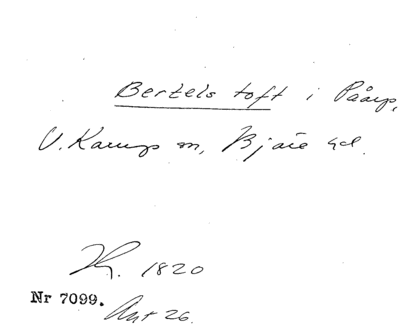 Bertels toft i Påarp,
V. Karup sn, Bjäre hd.
Kr. 1820
Nr 7099.
Ant 26.